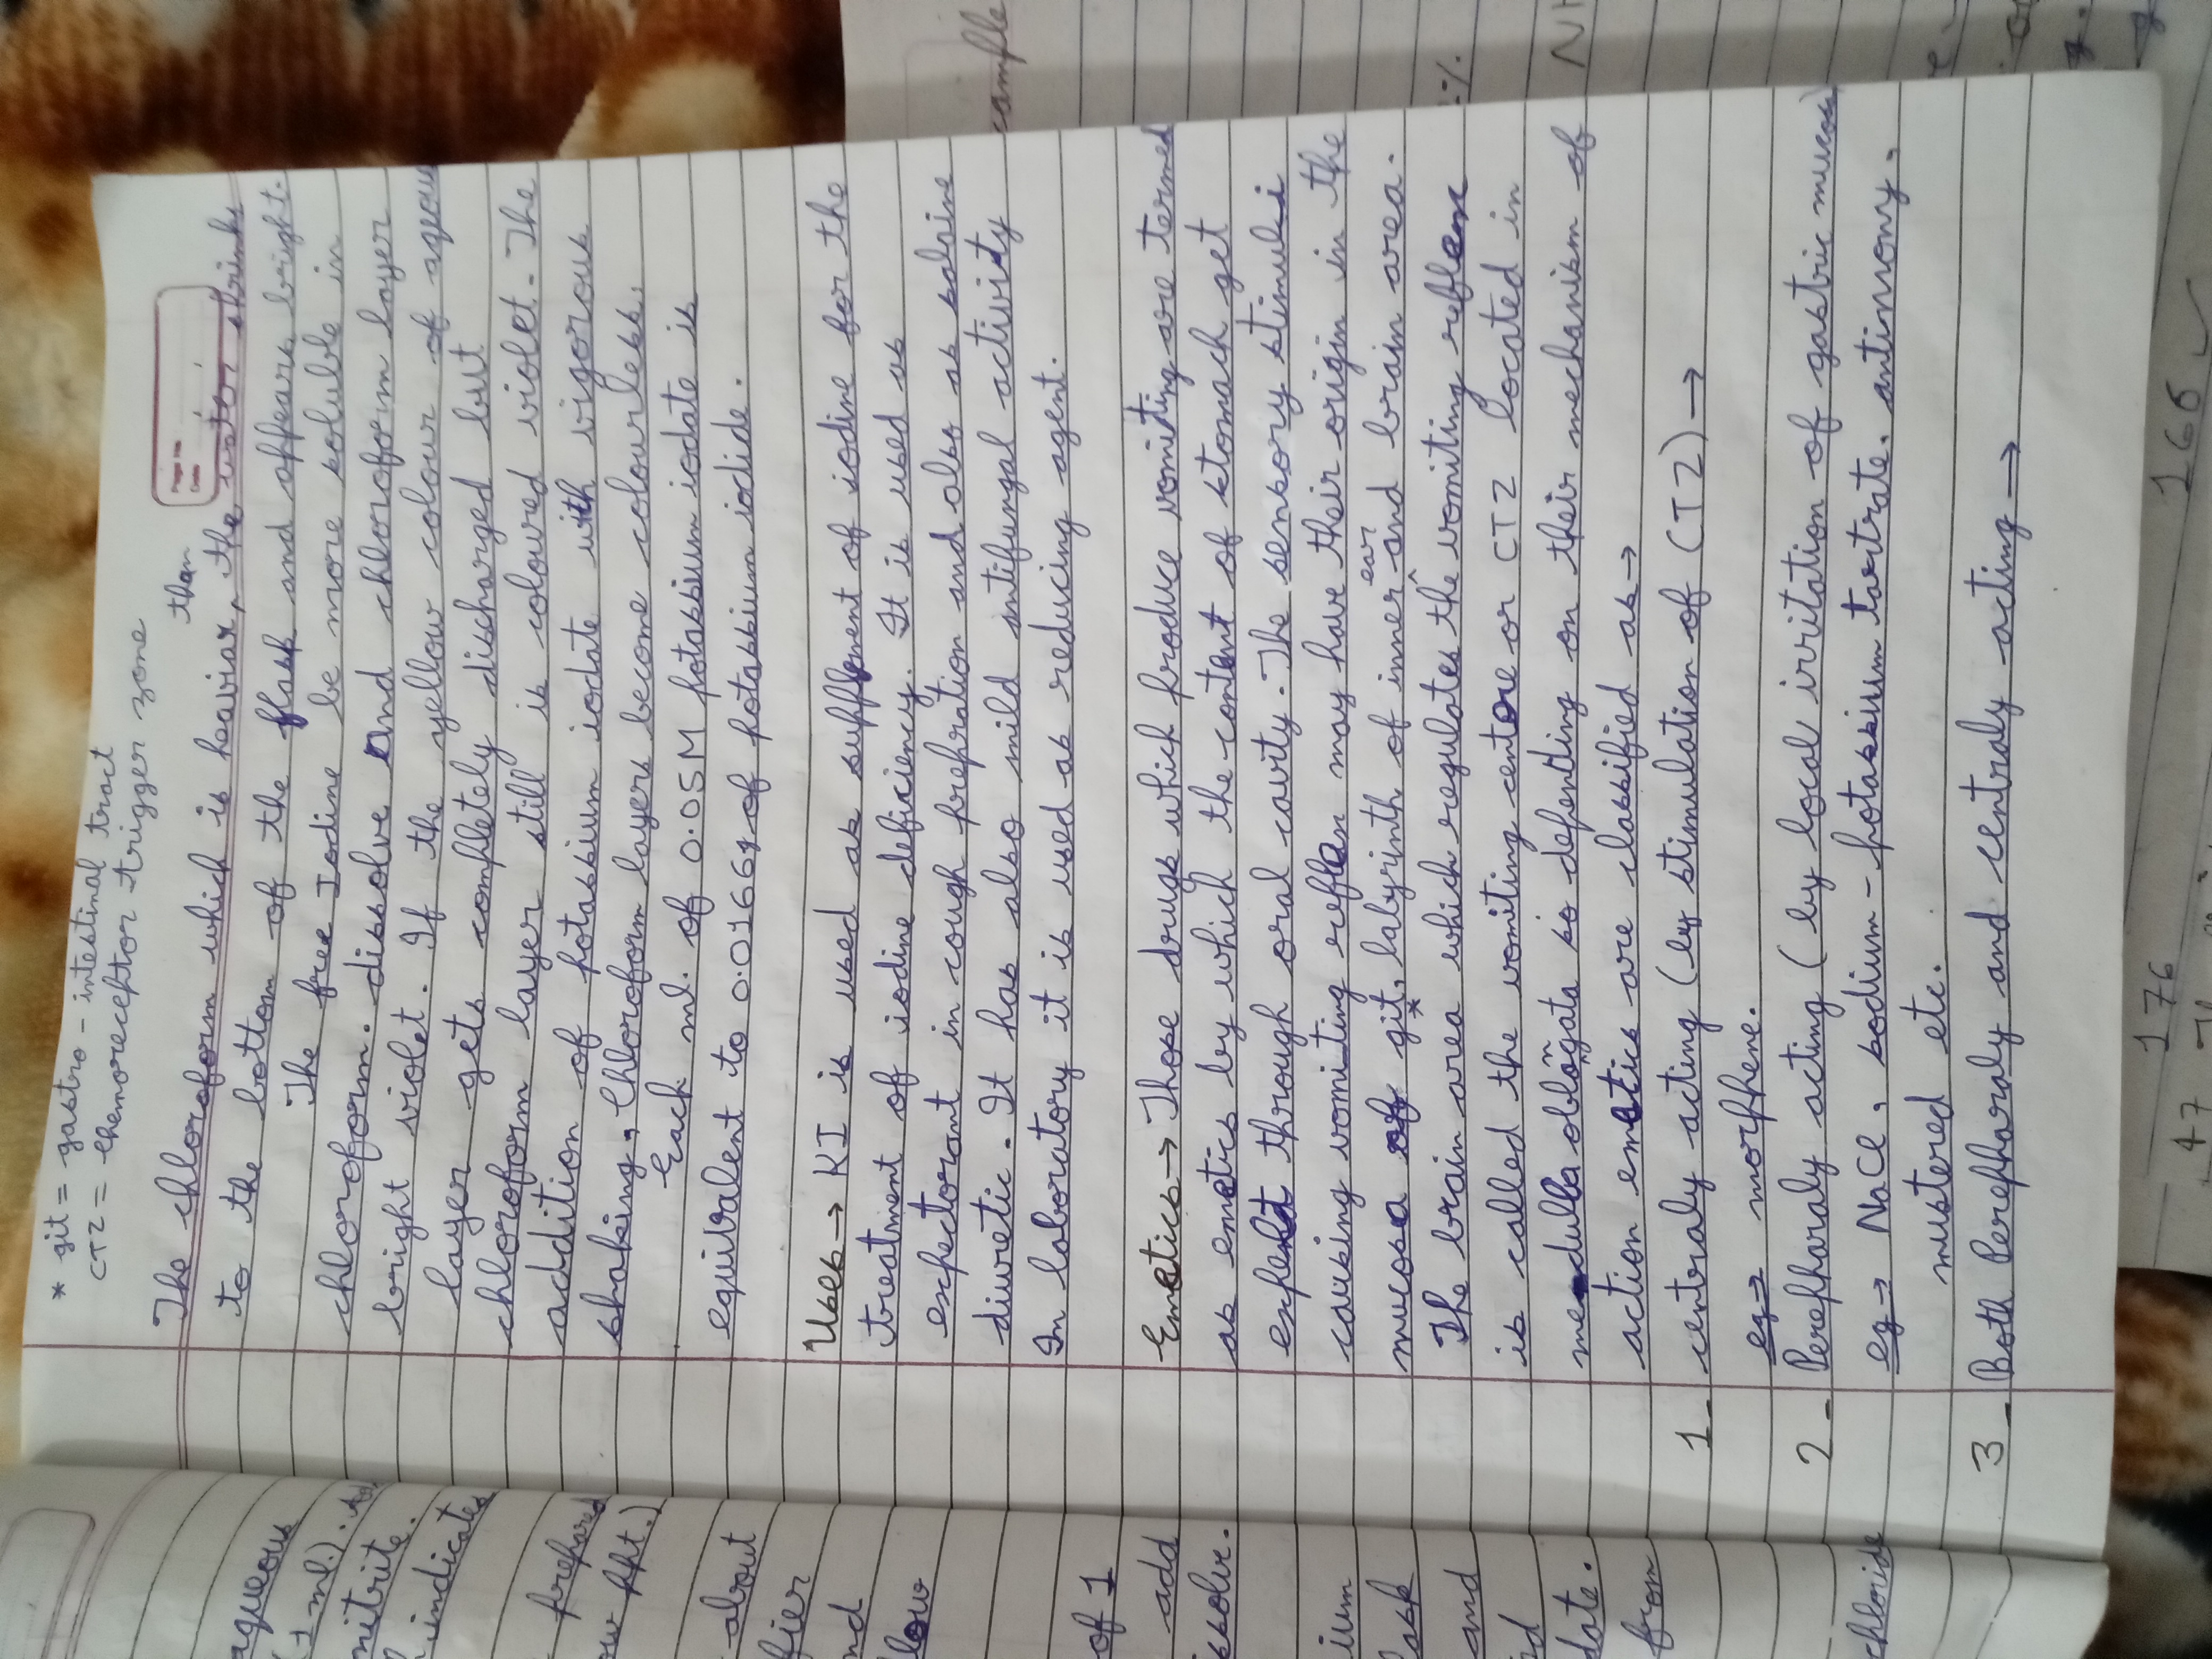 * git = gastro-intestinal tract
CTZ = chemoreceptor trigger zone
than
The chloroform which is heaviar, the water shrinks
to the bottom of the flask and appears bright.
The free Iodine be more soluble in
chloroform. dissolve and chloroform layer
bright violet. If the yellow colour of aqeous
layer gets completely discharged but
chloroform layer still is coloured violet. The
addition of potassium iodate with vigorous
shaking, Chloroform layers become colourless.
Each ml. of 0.05M potassium iodate is
equivalent to 0.0166g of potassium iodide.
Uses → KI is used as suppliment of iodine for the
treatment of iodine deficiency. It is used as
expectorant in cough prepration and also as solaine
diuretic. It has also mild antifungal activity
In laboratory it is used as reducing agent.
Emetics → Those drugs which produce vomiting are termed
as emetics by which the content of stomach get
expelet through oral cavity. The sensory stimuli
causing vomiting reflex may have their origin in the
mucosa of git*, labyrinth of inner ear and brain area.
The brain area which regulates the vomiting reflex
is called the vomiting centre or CTZ located in
medulla oblongata so depending on their mechanism of
action emetics are classified as →
1- centraly acting (by stimulation of (CTZ) →
eg → morphene.
2- Perepharaly acting (by local irritation of gastric mucosa)
eg → NaCl, sodium-potassium tartrate, antimony,
mustered etc.
3- Both Perepharaly and centraly acting →
aqueous
(1 ml.). to
nitrite.
indicates
prepared
ppt.)
about
of 1
add
ssolve.
ium
lask
and
date.
from
chloride
example
176
165
47